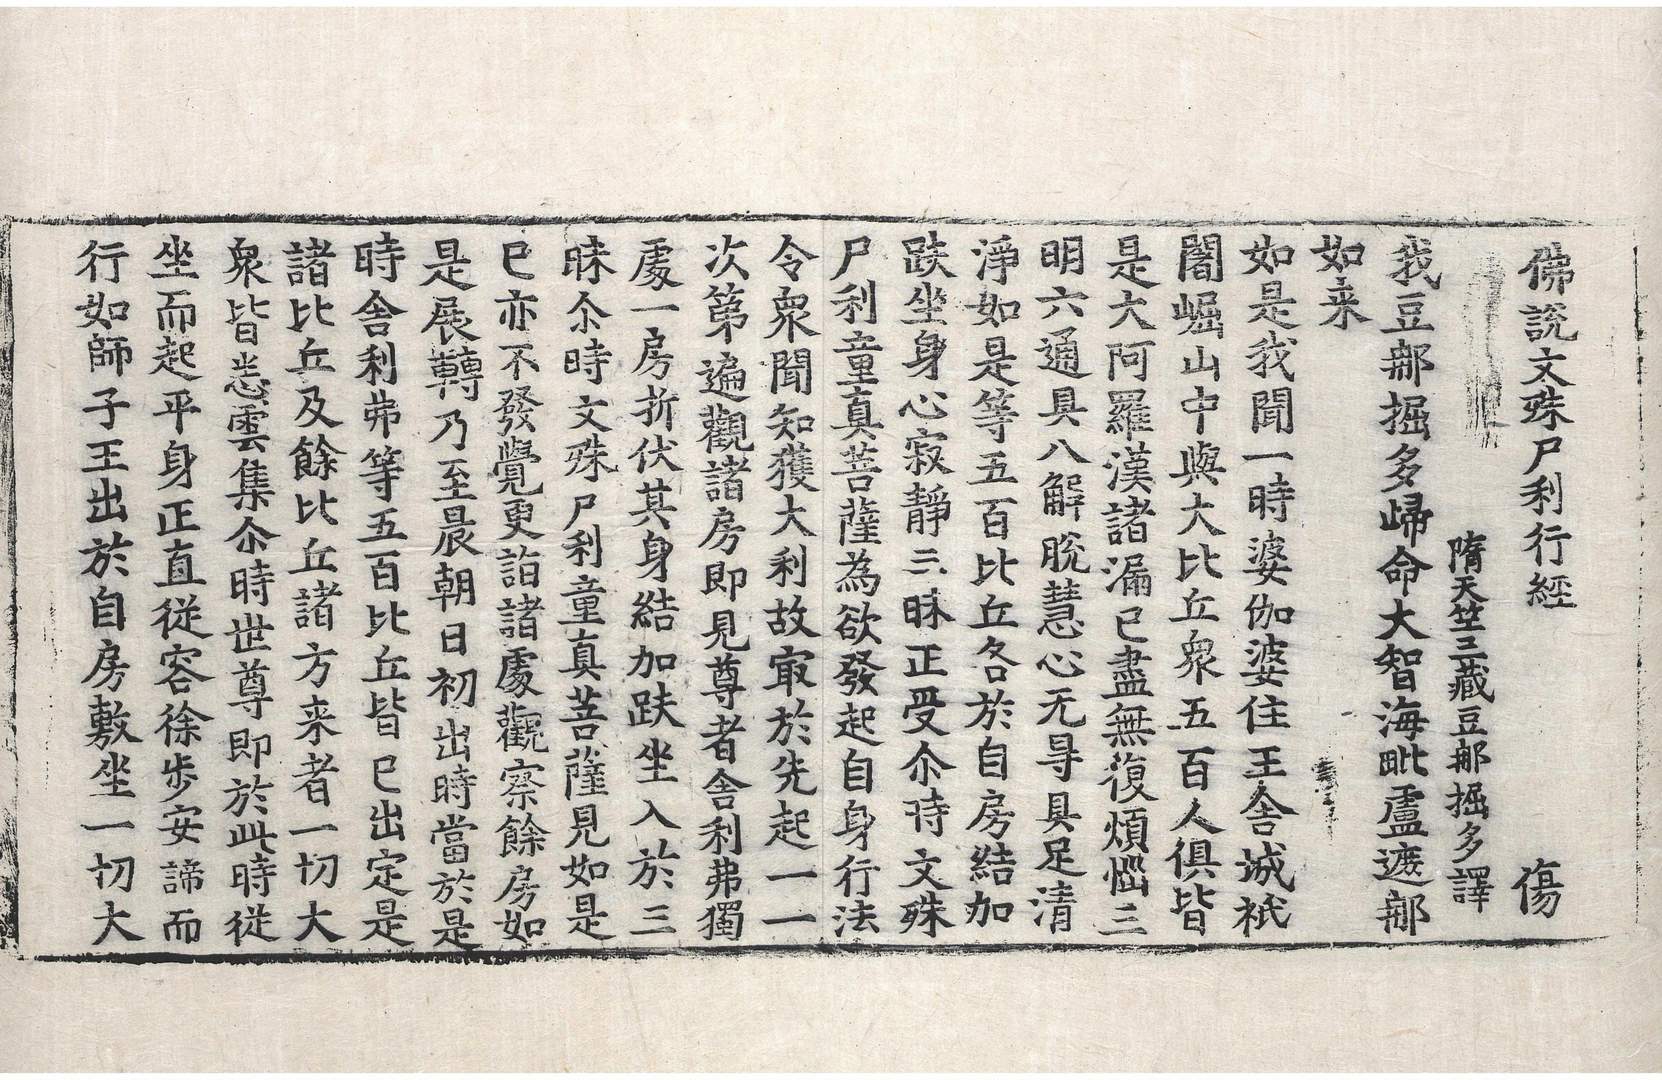 佛說文殊尸利行經 傷
隋天竺三藏豆那掘多譯
我豆那掘多歸命大智海毗盧遮那
如来
如是我聞一時婆伽婆住王舍城祇
闍崛山中與大比丘衆五百人俱皆
是大阿羅漢諸漏已盡無復煩惱三
明六通具八解脫慧心无㝵具足清
淨如是等五百比丘各於自房結加
趺坐身心寂靜三昧正受尒時文殊
尸利童真菩薩為欲發起自身行法
令衆聞知獲大利故㝡於先起一一
次第遍觀諸房即見尊者舍利弗獨
處一房折伏其身結加趺坐入於三
昧尒時文殊尸利童真菩薩見如是
已亦不發覺更詣諸處觀察餘房如
是展轉乃至晨朝日初出時當於是
時舍利弗等五百比丘皆已出定是
諸比丘及餘比丘諸方来者一切大
衆皆悉雲集尒時世尊即於此時從
坐而起平身正直從容徐步安諦而
行如師子王出於自房敷坐一切大